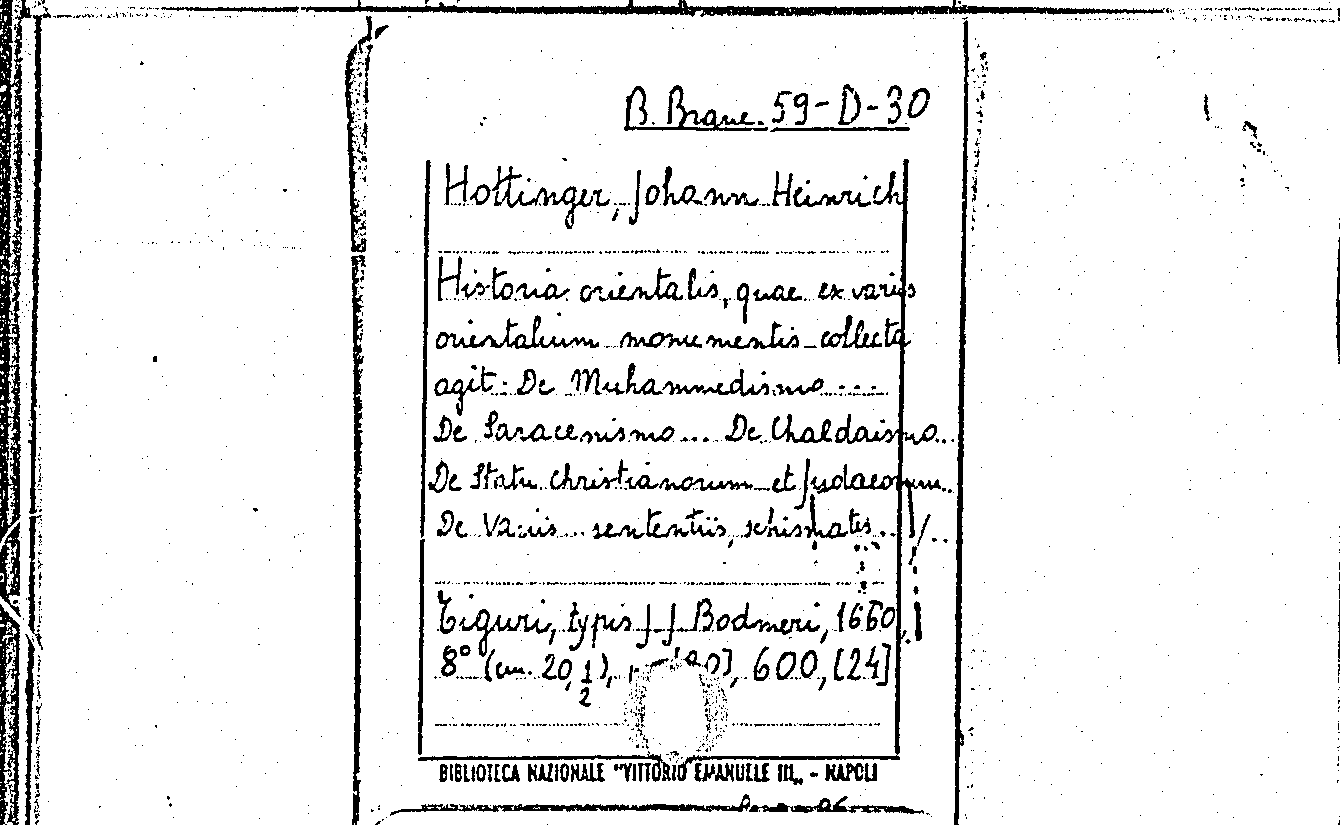 B. Branc. 59-D-30
Hottinger, Johann Heinrich
Historia orientalis, quae ex variis
orientalium monumentis collecta
agit: De Muhammedismo ....
De Saracenismo... De Chaldaismo...
De Statu christianorum et Judaeorum..
De Variis... sententiis, schismatis.. /..
Tiguri, typis J. J. Bodmeri, 1660,
8° (cm. 20,1/2), 600, [24]
BIBLIOTECA NAZIONALE "VITTORIO EMANUELE III„ - NAPOLI